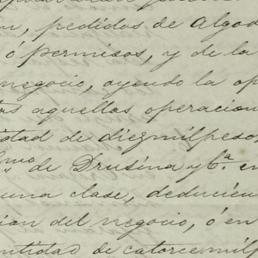 n, pedidos de Algod
ó permisos, y de la
negocio, oyendo la op
aquellas operacion
tidad de diez mil peso
de Drusina y Cª. en
una clase, deducien
ion del negocio, o en
ntidad de catorce mil